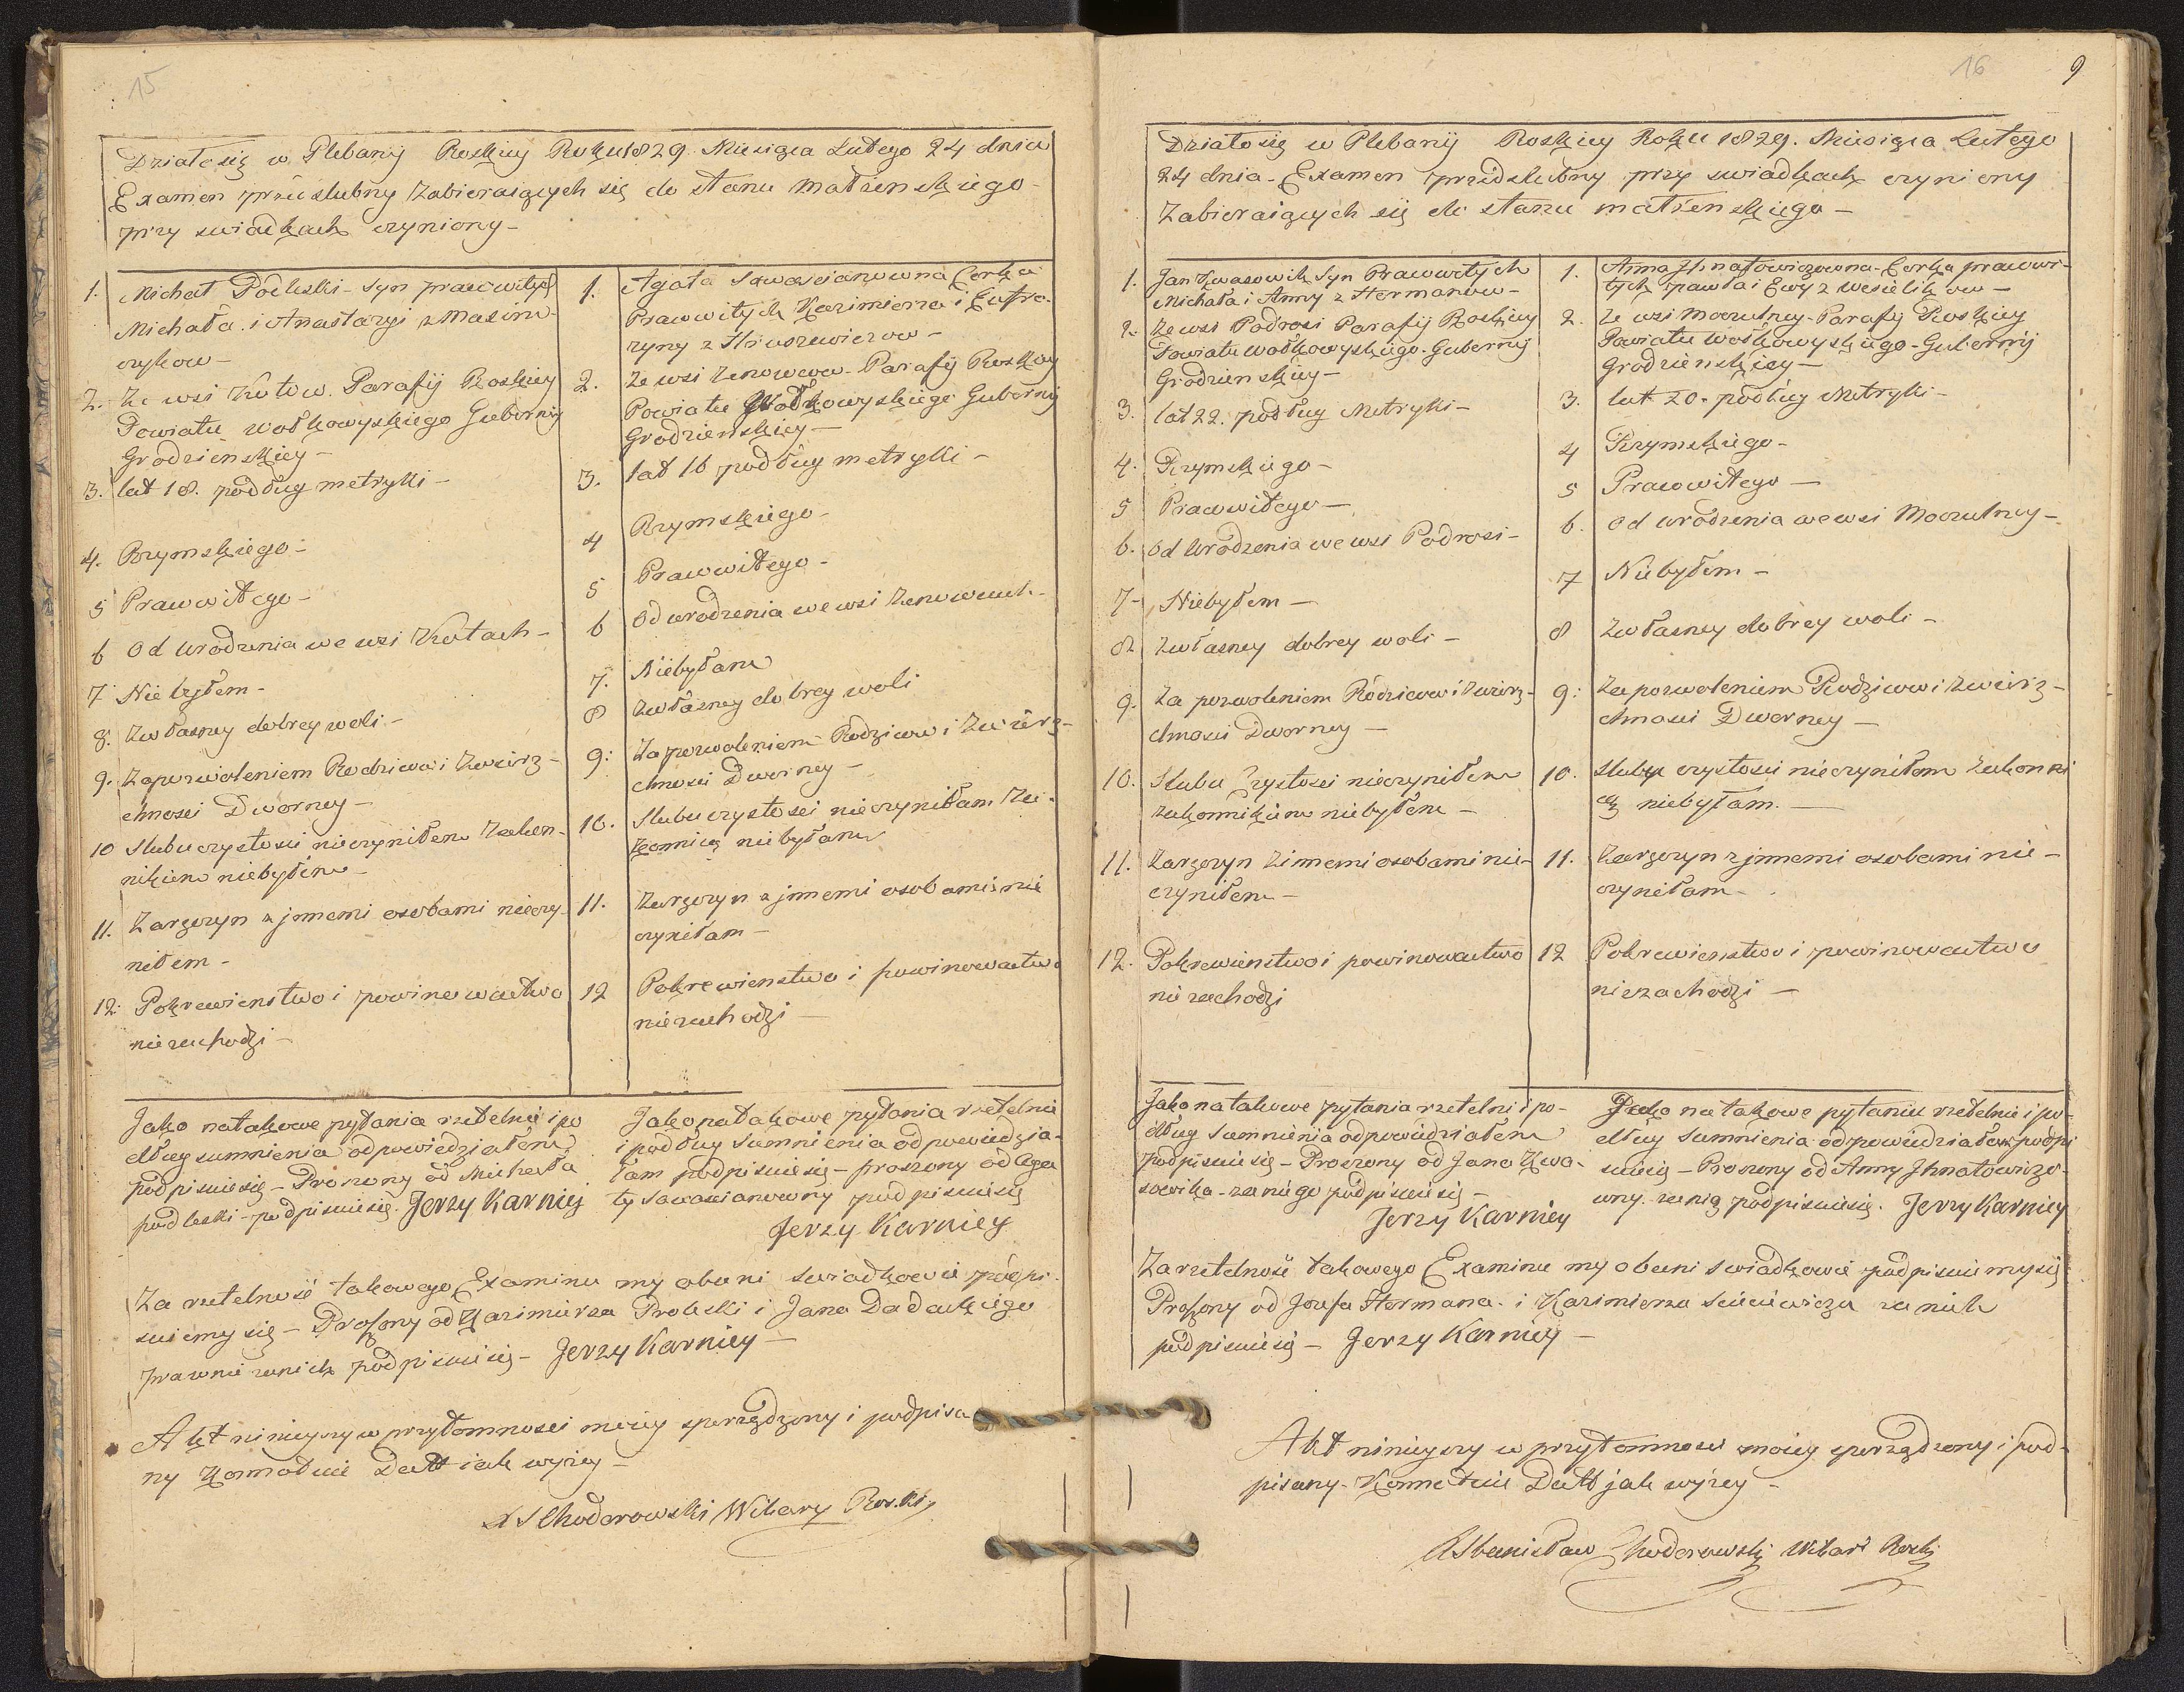 15
Działo się w Plebanij Roskiey Roku 1829 Miesiąca Lutego 24 dnia
Examen przed slubny Zabieraiących się do stanu małżenskiego
przy swiadkach czyniony -
1. Michał Podleski - syn prawowitych
Michała i Anastazyi z Masiu-
czykow -
2. Ze wsi Kutow Parafij Roskiey
Powiatu Wołkowyskiego Gubernij
Grodzienskiey -
3. lat 18. podług metryki -
4. Rzymskiego -
5 Prawowitego -
6 Od urodzenia we wsi Kutach -
7 Nie byłem -
8. Zwłasney dobrey woli -
9. Zapozwoleniem Rodziców i Zwierz-
chnosci Dworney -
10 Slubu czystosci nieczyniłem Zakon-
nikiem niebyłem -
11. Zaręczyn z jnnemi osobami nieczy-
niłem -
12. Pokrewienstwo i powinowactwo
niezachodzi -
1. Agata Sawasцianowna Corka
Prawowitych Kazimierza i Eufro-
zyny z
2. Ze wsi Zenowewa Parafij Roskiey
Powiatu Wołkowyskiego Gubernij
Grodzienskiey -
3. lat 16 podług metryki -
4 Rzymskiego -
5 Prawowitego -
6 Od urodzenia we wsi
7. Niebyłam
8 Zwłasney dobrey woli
9: Za pozwoleniem Rodziców i Zwierz-
chnosci Dworney -
10. Slubu czystosci nieczyniłam Za-
konnicą niebyłam
11. Zaręczyn z jnnemi osobami nie
czyniłam -
12 Pokrewienstwo i powinowactwo
niezachodzi -
Jako natakowe pytania rzetelnie i po
dług sumnienia odpowiedziałem
podpisuiesię - Proszony od Michała
podleski - podpisuiesię. Jerzy Karniey
Jako natakowe pytania rzetelnie
i podług Sumnienia odpowiedzia-
łam podpisuiesię - proszony od Aga
ty Sawascianowny podpisuiesię
Jerzy Karniey
Za rzetelność takowego Examinu my obecni swiadkowie podpi-
suiemy się - Proszony od Kazimierza i Jana Dadackiego
prawnie zanich podpisuiesię - Jerzy Karniey -
Akt ninieyszy w przytomnosci moiey sporządzony i podpisa
ny Konnotuie Datt iak wyżey -
X S Chodorowski Wikary Roski
16
9
Działo się w Plebanij Roskiey Roku 1829. Miesiąca Lutego
24 dnia - Examen przedslubny przy swiadkach czyniony
Zabieraiących się do stanu małżenskiego -
1. Jan Kwasowik Syn Prawowitych
Michała i Anny z Hermanow -
2. Ze wsi Podrosi Parafij Roskiey
Powiatu Wołkowyskiego Gubernij
Grodzienskiey -
3. lat 22. podług Metryki -
4. Rzymskiego -
5 Prawowitego -
6. Od Urodzenia we wsi Podrosi -
7 - Niebyłem -
8 Zwłasney dobrey woli -
9. Za pozwoleniem Rodziców i Zwierz-
chnosci Dworney -
10. Slubu Czystosci nieczyniłem
zakonnikiem niebyłem -
11. Zaręczyn Zinnemi osobami nie-
czyniłem -
12. Pokrewienstwo i powinowactwo
nie zachodzi
1. Anna Jhnatowiczowna - Corka prawowi-
tych Pawła i Ewy z Wesielik ow -
2. Ze wsi Moczulney - Parafij Roskiey
Powiatu Wołkowyskiego - Gubernij
Grodzienskiey -
3. lat 20. podług Metryki -
4 Rzymskiego -
5 Prawowitego -
6. Od urodzenia we wsi Moczulney -
7 Niebyłem -
8 Zwłasney dobrey woli -
9: Za pozwoleniem Rodziców i Zwierz-
chnosci Dworney -
10. Slubu czystosci nieczyniłam Zakonni
cą niebyłam. -
11. Zaręczyn z jnnemi osobami nie -
czyniłam -
12 Pokrewienstwo i powinowactwo
niezachodzi -
Jako na takowe pytania rzetelni i po-
dług Sumnienia odpowiedziałem
podpisuie się - Proszony od Jana Kwa-
sowika - za niego podpisuie się -
Jerzy Karniey
Jako na takowe pytania rzetelnie i po-
dług Sumnienia odpowiedziałam podpi
suiesię - Proszony od Anny Jhnatowiczo-
wny. zanią podpisuiesię. Jerzy Karniey
Za rzetelność takowego Examinu my obecni Swiadkowie podpisuiemysię
Proszony od Jozefa Hermana i Kazimierza za nich
podpisuiesię - Jerzy Karniey -
Akt ninieyszy w przytomnosci moiey sporządzony i pod-
pisany - Konnotuie Datt jak wyżey -
X Stanisław Chodorowski Wikari Roski